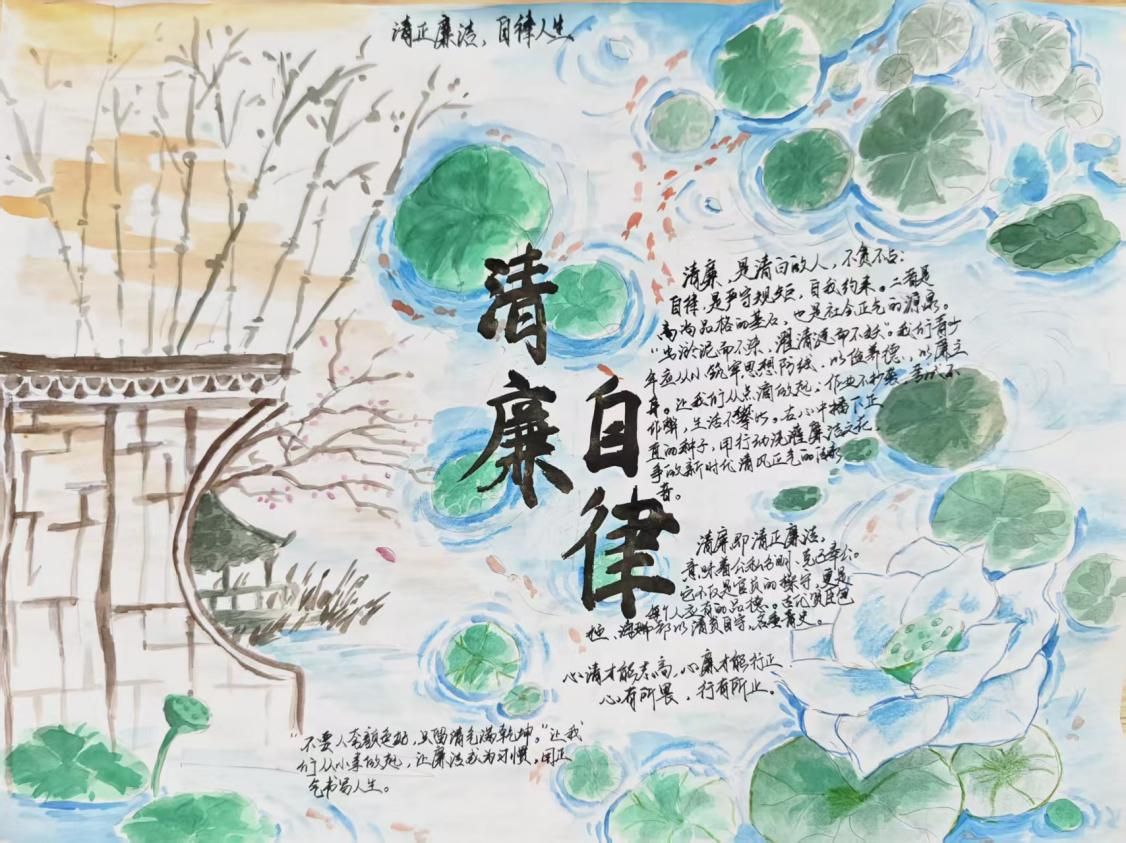 清正廉洁,自律人生
清廉
自律
清廉,是清白做人,不贪不占;
自律,是严守规矩,自我约束。二者是
高尚品格的基石,也是社会正气的源泉。
"出淤泥而不染,濯清涟而不妖"我们青少
年应从小筑牢思想防线,以俭养德,以廉立
身。让我们从点滴做起:作业不抄袭,考试不
作弊,生活不攀比。在心中播下正
直的种子,用行动浇灌廉洁之花,
争做新时代清风正气的传承
者。
清廉即清正廉洁,
意味着公私分明、克己奉公。
它不仅是官员的操守,更是
每个人应有的品德。古代贤臣包
拯、海瑞都以清贫自守,名垂青史。
心清才能志高,心廉才能行正
心有所畏,行有所止。
"不要人夸颜色好,只留清气满乾坤。"让我
们从小事做起,让廉洁成为习惯,用正
气书写人生。